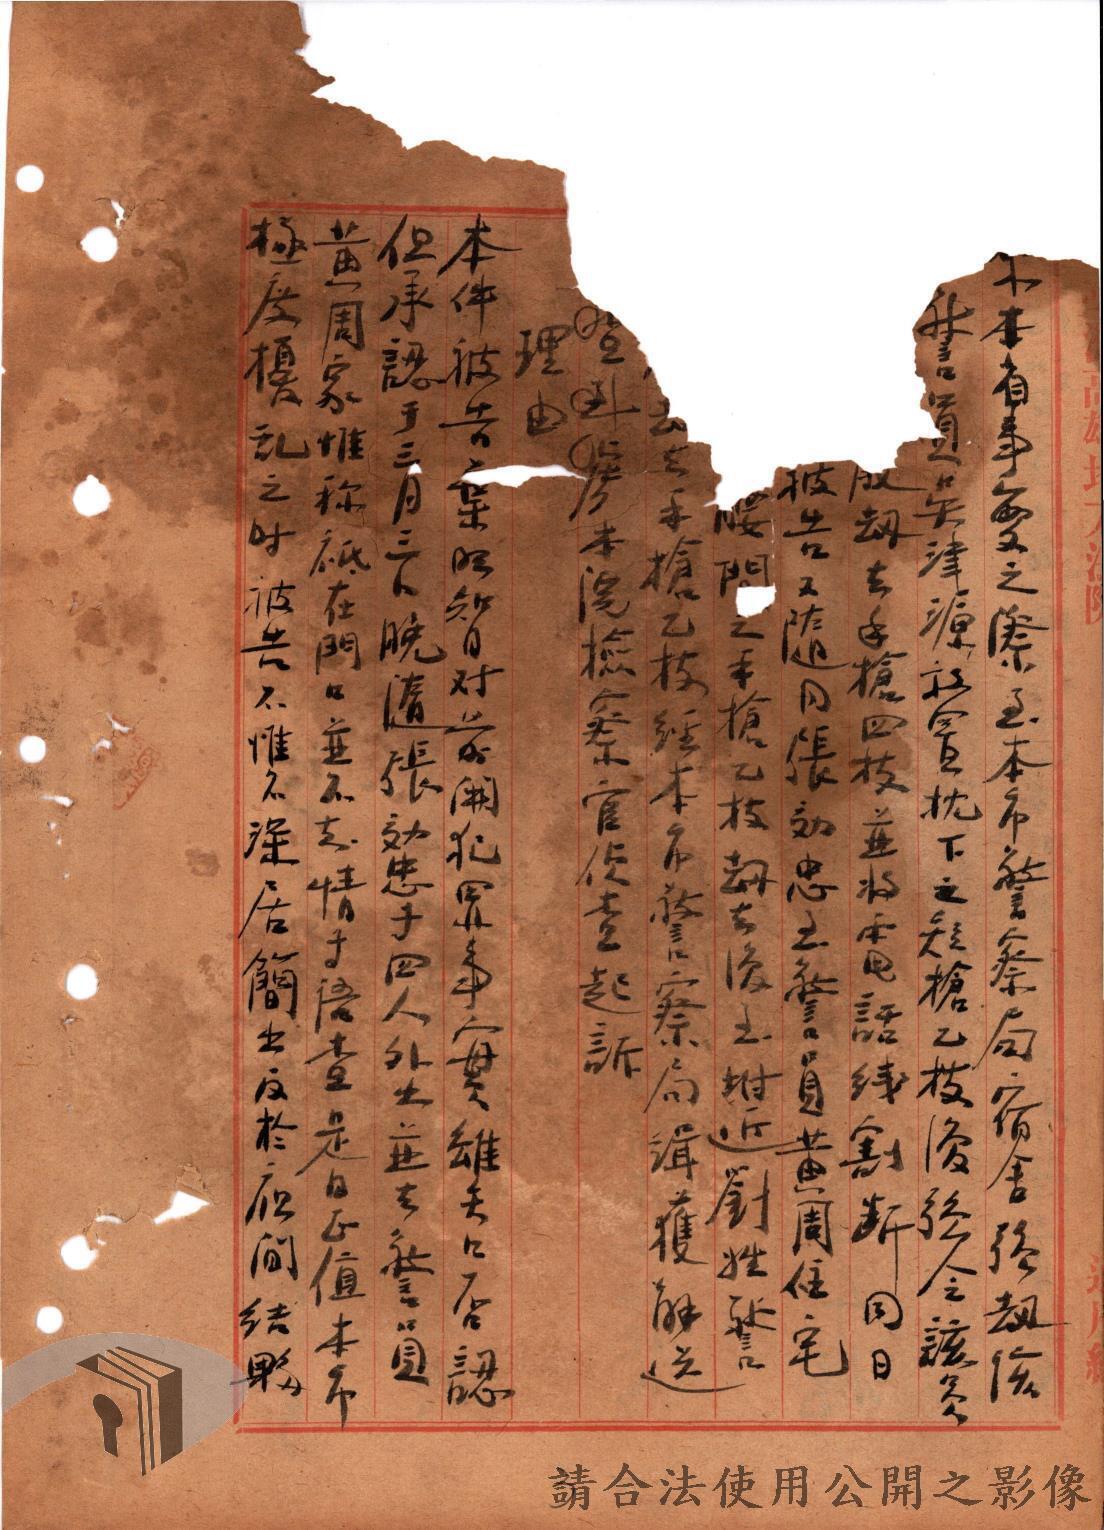 本省事變之際至本市警察局宿舍強劫該
警員吳津源放置枕下之長槍乙枝後強令該員
劫去手槍四枝並將電話綫割断同日
被告又隨同張効忠至警員黄周住宅
腰間之手槍乙枝劫去後至附近劉姓警
去手槍乙枝經本市警察局緝獲解送
本院檢察官偵查起訴
理由
本件被告葉昭智对前開犯罪事實雖矢口否認
但承認于三月三日晚隨張効忠等四人外出並去警員
黄周家惟称祗在門口並不知情等語查是日正值本市
極度擾乱之时被告不惟不深居簡出反於夜間結夥
高雄地方法院
請合法使用公開之影像